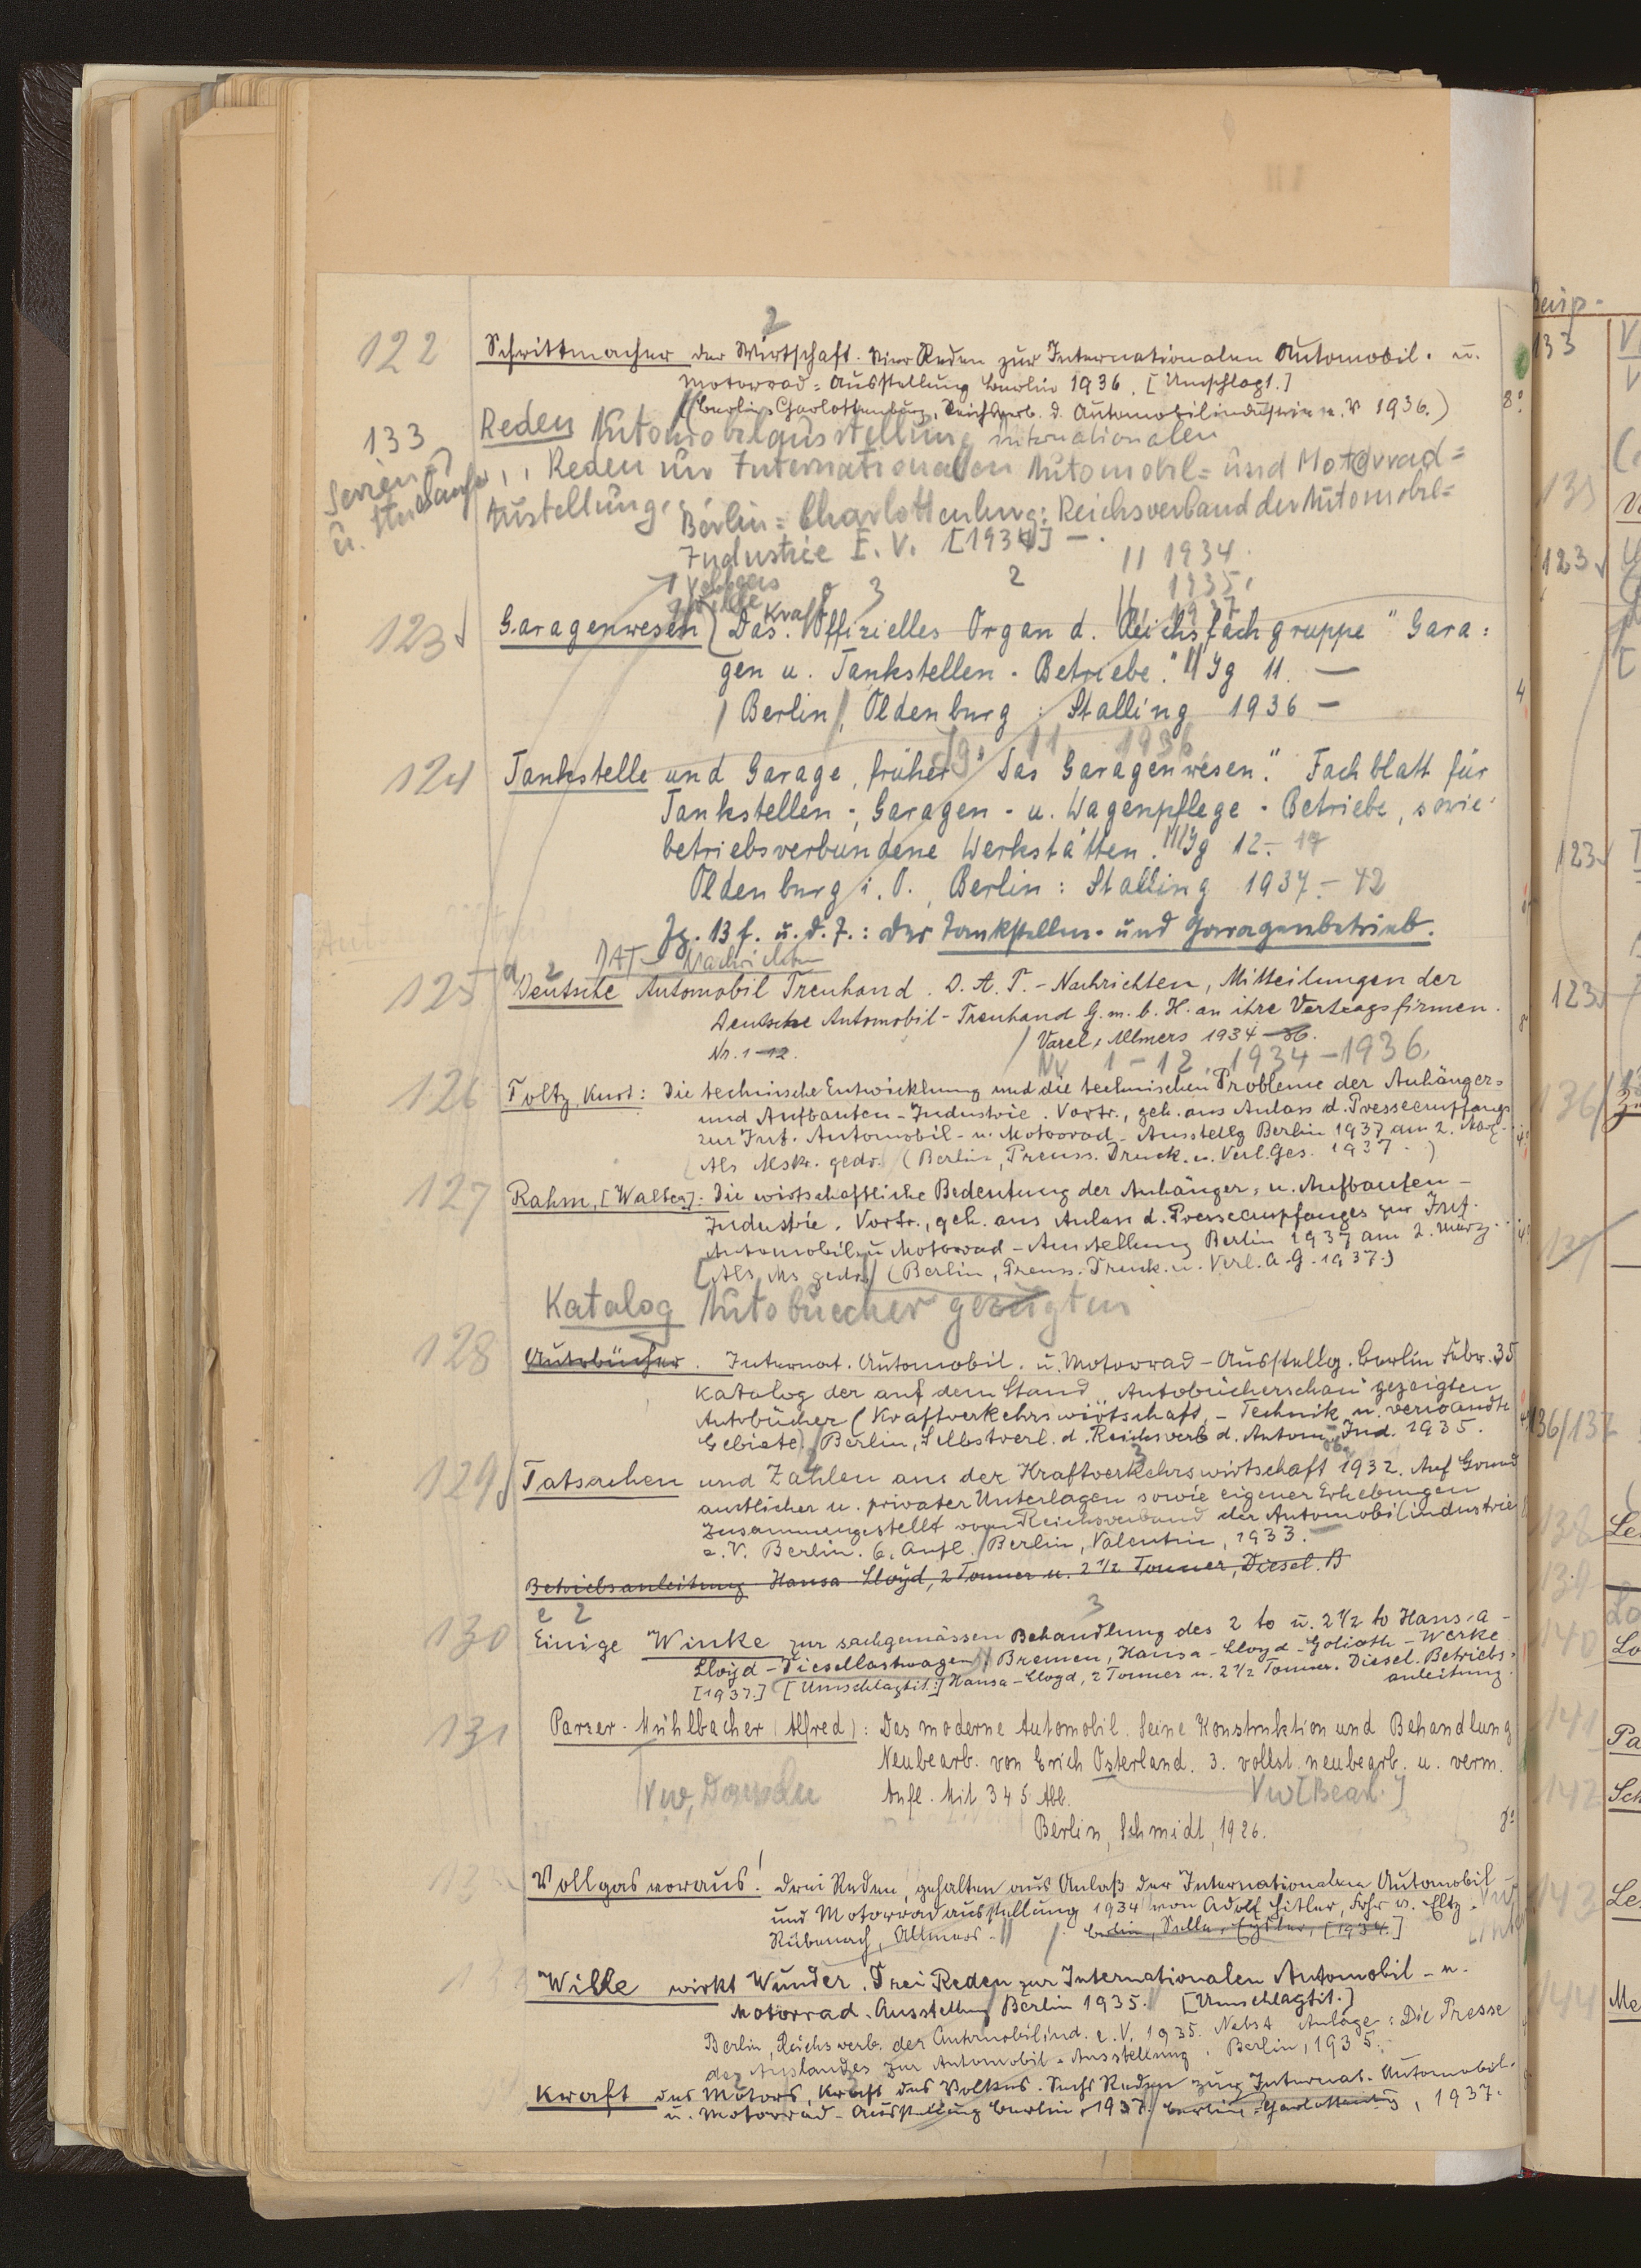 2
122 Schrittmacher der Wirtschaft. Vier Reden zur Internationalen Automobil- u.
Motorrad-Ausstellung Berlin 1936. [Umschlagt.]
(Berlin-Charlottenburg, Reichsverb. d. Automobilindustrie e. V. 1936.) 8°
133 Reden Automobilausstellung Internationalen
Serien
Reden zur Internationalen Automobil= und Motorrad=
Austellung. Berlin=Charlottenburg: Reichsverband der Automobil=
Industrie E. V. [1934] -
11 1934.
1935.
1937
Vollgas
Wille
Kraft 3 2
123 Garagenwesen, Das. Offizielles Organ d. Reichsfachgruppe "Gara=
gen u. Tankstellen-Betriebe." Jg 11. —
Berlin, Oldenburg: Stalling 1936 — 4
Jg. 11. 1936
124 Tankstelle und Garage, früher "Das Garagenwesen." Fachblatt für
Tankstellen-, Garagen- u. Wagenpflege-Betriebe, sowie
betriebsverbundene Werkstätten. Jg 12.-17
Oldenburg i. O., Berlin: Stalling 1937.-42
Jg. 13 f. u. d. T.: Der Tankstellen- und Garagenbetrieb.
DAT- Nachrichten
125 Deutsche Automobil Treuhand. D. A. T.-Nachrichten, Mitteilungen der
Deutsche Automobil-Treuhand G.m.b.H. an ihre Vertragsfirmen.
Nr. 1-12. Varel, Allmers 1934-36. 8°
Nr 1-12. 1934-1936.
126 Foltz, Kurt: Die technische Entwicklung und die technischen Probleme der Anhänger-
und Aufbauten-Industrie. Vortr., geh. aus Anlass d. Presseempfangs
zur Int. Automobil- u. Motorrad-Ausstellg Berlin 1937 am 2. März.
(Als Mskr. gedr.) (Berlin, Preuss. Druck. u. Verl. Ges. 1937.) 4°
127 Rahm, [Walter]: Die wirtschaftliche Bedeutung der Anhänger- u. Aufbauten-
Industrie. Vortr., geh. aus Anlass d. Presseempfanges zur Int.
Automobil- u Motorrad-Ausstellung Berlin 1937 am 2. März. 4°
[Als Ms gedr.] (Berlin, Preuss. Druck. u. Verl. A.G. 1937.)
Katalog Autobuecher gezeigten
128 Autobücher. Internat. Automobil- u. Motorrad-Ausstellg. Berlin Febr. 35
Katalog der auf dem Stand "Autobücherschau" gezeigten
Autobücher (Kraftverkehrswirtschaft, -Technik u. verwandte
Gebiete). Berlin, Selbstverl. d. Reichsverb d. Autom. Ind. 1935.
129 Tatsachen und Zahlen aus der Kraftverkehrswirtschaft 1932. Auf Grund
amtlicher u. privater Unterlagen sowie eigener Erhebungen
zusammengestellt vom Reichsverband der Automobilindustrie
e. V. Berlin. 6. Aufl. Berlin, Valentin, 1933.
Betriebsanleitung Hansa-Lloyd, 2 Tonner u. 2 1/2 Tonner, Diesel. B
2 2 3
130 Einige Winke zur sachgemässen Behandlung des 2 to u. 2 1/2 to Hansa-
Lloyd-Diesellastwagen. Bremen, Hansa-Lloyd-Goliath-Werke
[1937.] [Umschlagtit.:] Hansa-Lloyd, 2 Tonner u. 2 1/2 Tonner. Diesel. Betriebs-
anleitung.
131 Parzer-Mühlbacher (Alfred): Das moderne Automobil. Seine Konstruktion und Behandlung
Neubearb. von Erich Osterland. 3. vollst. neubearb. u. verm.
Aufl. Mit 345 Abb. Vw [Bearb.]
Berlin, Schmidt, 1926. 8°
Vollgas voraus! Drei Reden, gehalten aus Anlaß der Internationalen Automobil-
und Motorradausstellung 1934 von Adolf Hitler, Frhr v. Eltz-
Rübenach, Allmers. Berlin, [1934.]
Wille wirkt Wunder. Drei Reden zur Internationalen Automobil- u.
Motorrad-Ausstellung Berlin 1935. [Umschlagtit.]
Berlin, Reichsverb. der Automobilind. e. V. 1935. Nebst Anlage: Die Presse
des Auslandes zur Automobil-Ausstellung. Berlin, 1935.
Kraft des Motors, Kraft des Volkes. Sechs Reden zur Internat. Automobil-
u. Motorrad-Ausstellung Berlin 1937. Berlin-Charlottenburg, 1937.
133
135
123
123
123
136
136/137
138
139
140
141 Pa
142 Sch
143 Le
144 Me